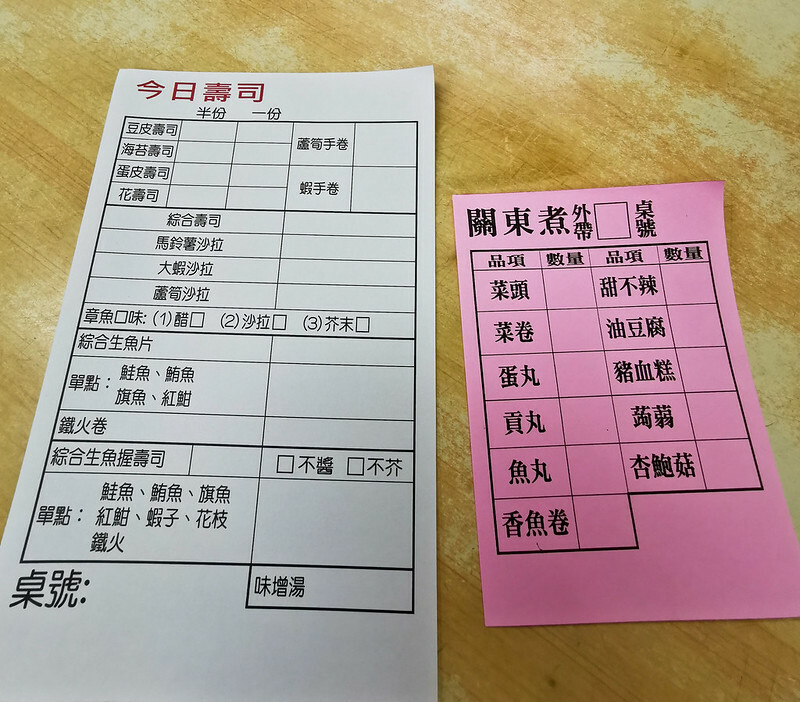 今日壽司
半份 一份
豆皮壽司
海苔壽司
蘆筍手卷
蛋皮壽司
花壽司
蝦手卷
綜合壽司
馬鈴薯沙拉
大蝦沙拉
蘆筍沙拉
章魚口味:(1)醋□ (2)沙拉□ (3)芥末□
綜合生魚片
單點:鮭魚、鮪魚
旗魚、紅魽
鐵火卷
綜合生魚握壽司 □不醬 □不芥
鮭魚、鮪魚、旗魚
單點:紅魽、蝦子、花枝
鐵火
味增湯
桌號:
關東煮 外帶□ 桌號
品項 數量 品項 數量
菜頭 甜不辣
菜卷 油豆腐
蛋丸 豬血糕
貢丸 蒟蒻
魚丸 杏鮑菇
香魚卷